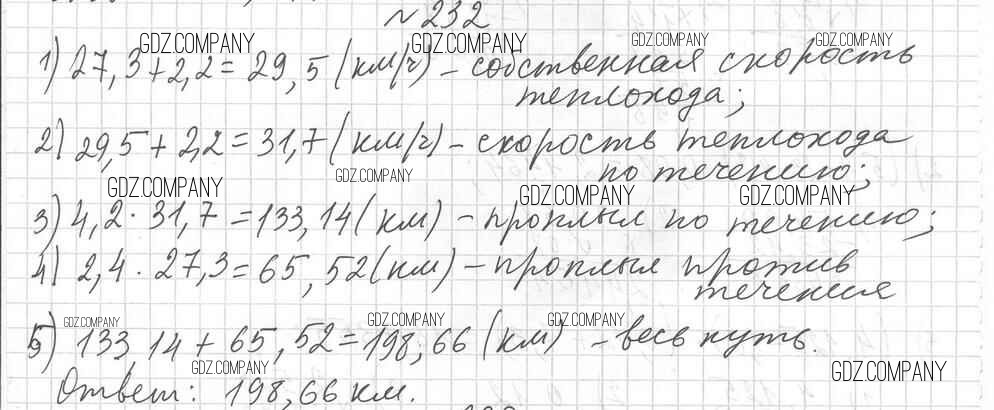 №232
1) 27,3+2,2=29,5 (км/ч) – собственная скорость
теплохода;
2) 29,5+2,2=31,7 (км/ч) – скорость теплохода
по течению;
3) 4,2·31,7=133,14 (км) – проплыл по течению;
4) 2,4·27,3=65,52 (км) – проплыл против
течения
5) 133,14+65,52=198,66 (км) – весь путь.
Ответ: 198,66 км.
GDZ.COMPANY
GDZ.COMPANY
GDZ.COMPANY
GDZ.COMPANY
GDZ.COMPANY
GDZ.COMPANY
GDZ.COMPANY
GDZ.COMPANY
GDZ.COMPANY
GDZ.COMPANY
GDZ.COMPANY
GDZ.COMPANY
GDZ.COMPANY